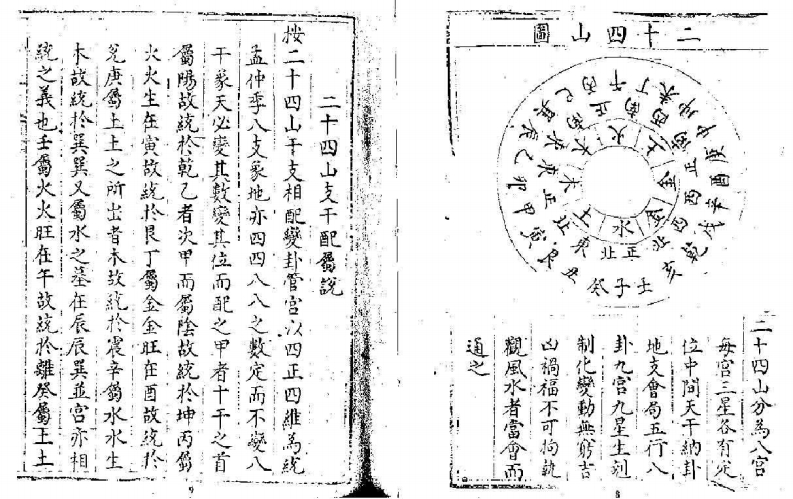 二十四山圖
壬子癸
丑艮寅
甲卯乙
辰巽巳
丙午丁
未坤申
庚酉辛
戌乾亥
正北
東北
正東
東南
正南
西南
正西
西北
水
土
木
木
火
土
金
金
二十四山分為八宮
每宮三星各有定
位中間天干納卦
地支會局五行八
卦九宮九星生剋
制化變動無窮吉
凶禍福不可拘執
觀風水者當會而
通之
8
二十四山支干配屬説
按二十四山干支相配變卦管宮以四正四維為統
孟仲季八支象地亦四四八八之數定而不變八
干象天必變其數變其位而配之甲者十干之首
屬陽故統於乾乙者次甲而屬陰故統於坤丙屬
火火生在寅故統於艮丁屬金金旺在酉故統於
兌庚屬土土之所出者木故統於震辛屬水水生
木故統於巽巽又屬水之墓在辰辰巽並宮亦相
統之義也壬屬火火旺在午故統於離癸屬王土
9